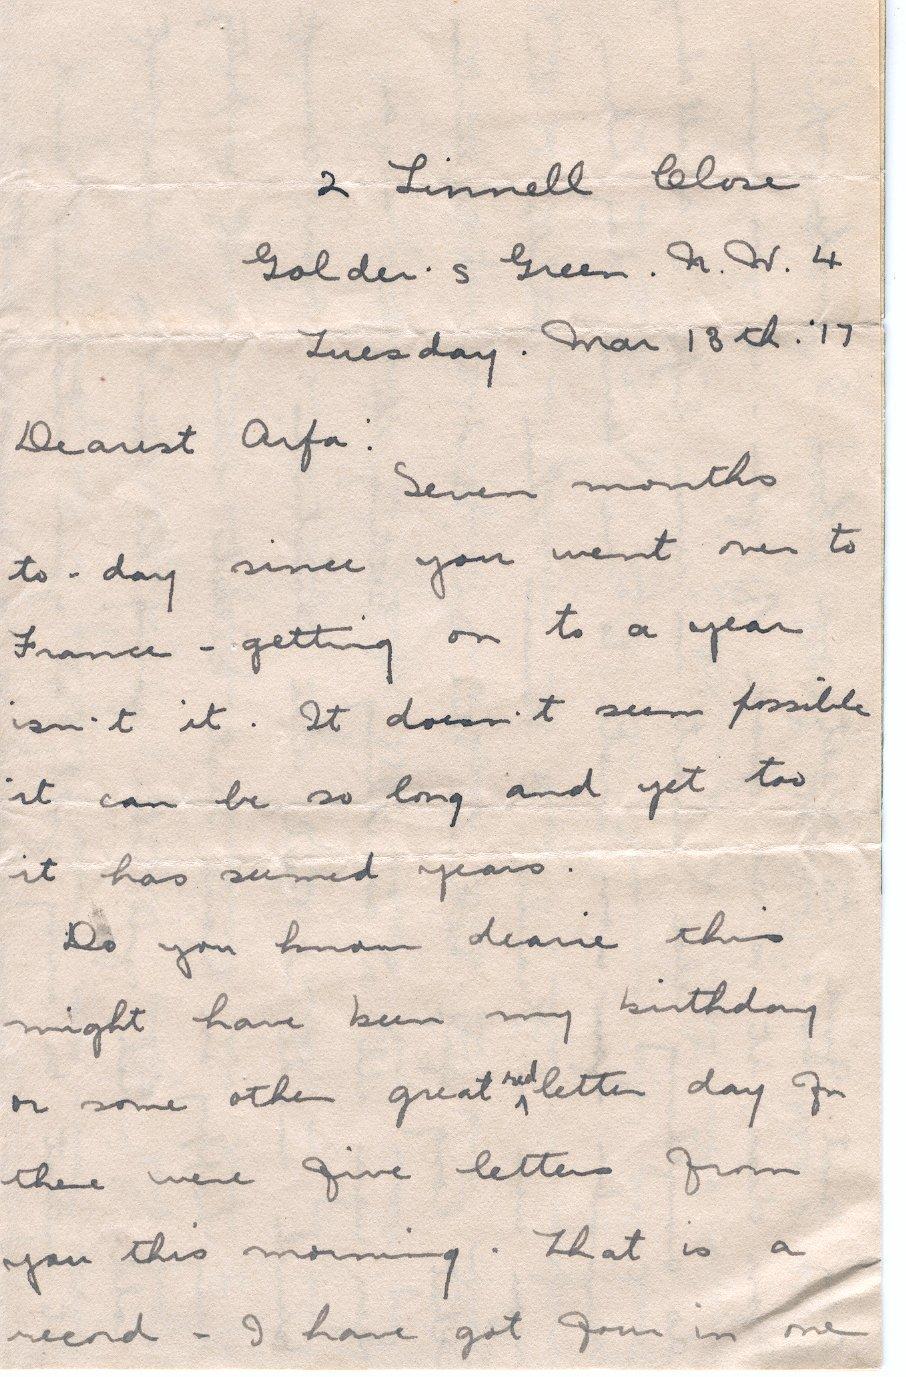 2 Linnell Close
Golder's Green. N.W. 4
Tuesday. Mar 13th. '17
Dearest Arfa:
Seven months
to-day since you went over to
France - getting on to a year
isn't it. It doesn't seem possible
it can be so long and yet too
it has seemed years.
Do you know dearie this
might have been my birthday
or some other great red letter day for
there were five letters from
you this morning. That is a
record - I have got four in one